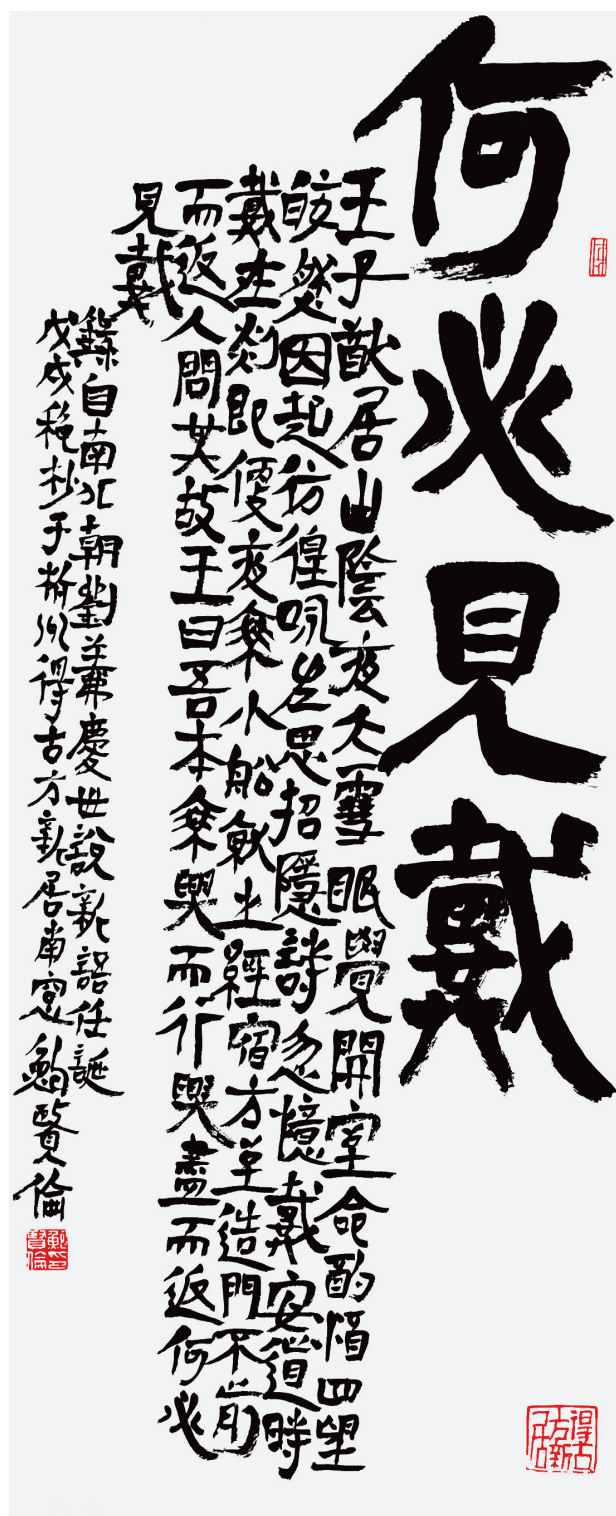 何必見戴
王子猷居山陰夜大雪眠覺開室命酌酒四望
皎然因起彷徨咏左思招隱詩忽憶戴安道時
戴在剡即便夜乘小船就之經宿方至造門不前
而返人問其故王曰吾本乘興而行興盡而返何必
見戴
錄自南北朝劉義慶世說新語任誕
戊戌秋杪于杭州得古方新居南窗鮑賢倫
鮑印賢倫
得古方新居